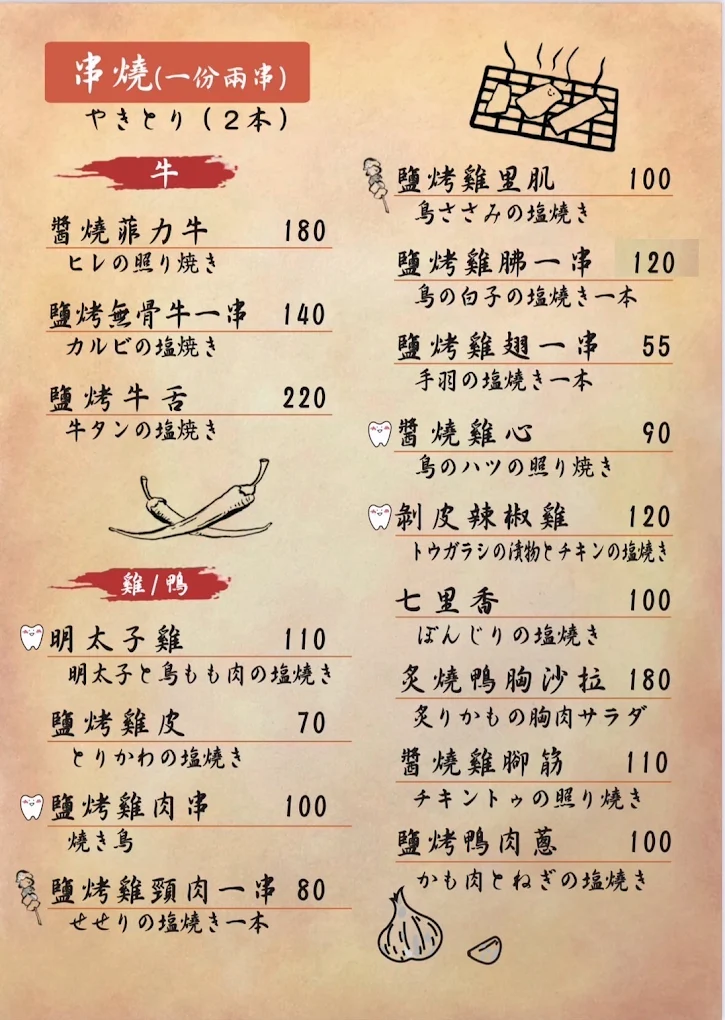 串燒(一份兩串)
やきとり(2本)
牛
醬燒菲力牛 180
ヒレの照り焼き
鹽烤無骨牛一串 140
カルビの塩焼き
鹽烤牛舌 220
牛タンの塩焼き
雞/鴨
明太子雞 110
明太子と鳥もも肉の塩焼き
鹽烤雞皮 70
とりかわの塩焼き
鹽烤雞肉串 100
焼き鳥
鹽烤雞頸肉一串 80
せせりの塩焼き一本
鹽烤雞里肌 100
鳥ささみの塩焼き
鹽烤雞胇一串 120
鳥の白子の塩焼き一本
鹽烤雞翅一串 55
手羽の塩焼き一本
醬燒雞心 90
鳥のハツの照り焼き
剝皮辣椒雞 120
トウガラシの漬物とチキンの塩焼き
七里香 100
ぼんじりの塩焼き
炙燒鴨胸沙拉 180
炙りかもの胸肉サラダ
醬燒雞腳筋 110
チキントゥの照り焼き
鹽烤鴨肉蔥 100
かも肉とねぎの塩焼き